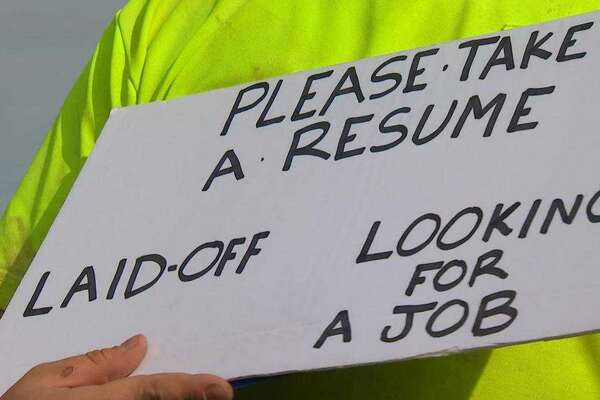 PLEASE·TAKE
A·RESUME
LAID-OFF
LOOKING
FOR
A JOB